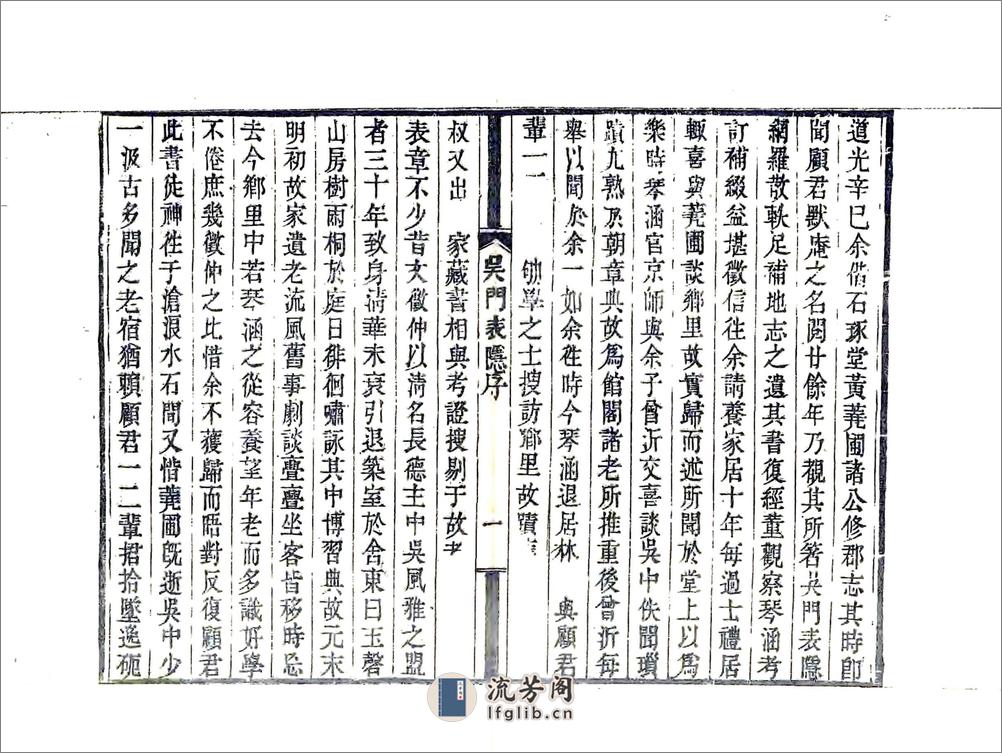 道光辛巳余偕石琢堂黃蕘圃諸公修郡志其時卽
聞顧君默庵之名閱廿餘年乃觀其所著吳門表隱
網羅散軼足補地志之遺其書復經董觀察琴涵考
訂補綴益堪徵信往余請養家居十年每過士禮居
輒喜與蕘圃談鄉里故實歸而述所聞於堂上以爲
樂時琴涵官京師與余子曾沂交喜談吳中佚聞瑣
蹟尤熟於朝章典故爲館閣諸老所推重後曾沂每
舉以聞於余一如余往時今琴涵退居林 與顧君
輩一二 劬學之士搜訪鄉里故蹟
吳門表隱序 一
叔又出 家藏書相與考證搜剔于故
表章不少昔文徵仲以淸名長德主中吳風雅之盟
者三十年致身淸華未衰引退築室於舍東曰玉磬
山房樹兩桐於庭日徘徊嘯詠其中博習典故元末
明初故家遺老流風舊事劇談亹亹坐客皆移時忘
去今鄉里中若琴涵之從容養望年老而多識好學
不倦庶幾徵仲之比惜余不獲歸而晤對反復顧君
此書徒神往于滄浪水石間又惜蕘圃旣逝吳中少
一汲古多聞之老宿猶賴顧君一二輩捃拾墜逸
流芳阁
lfglib.cn